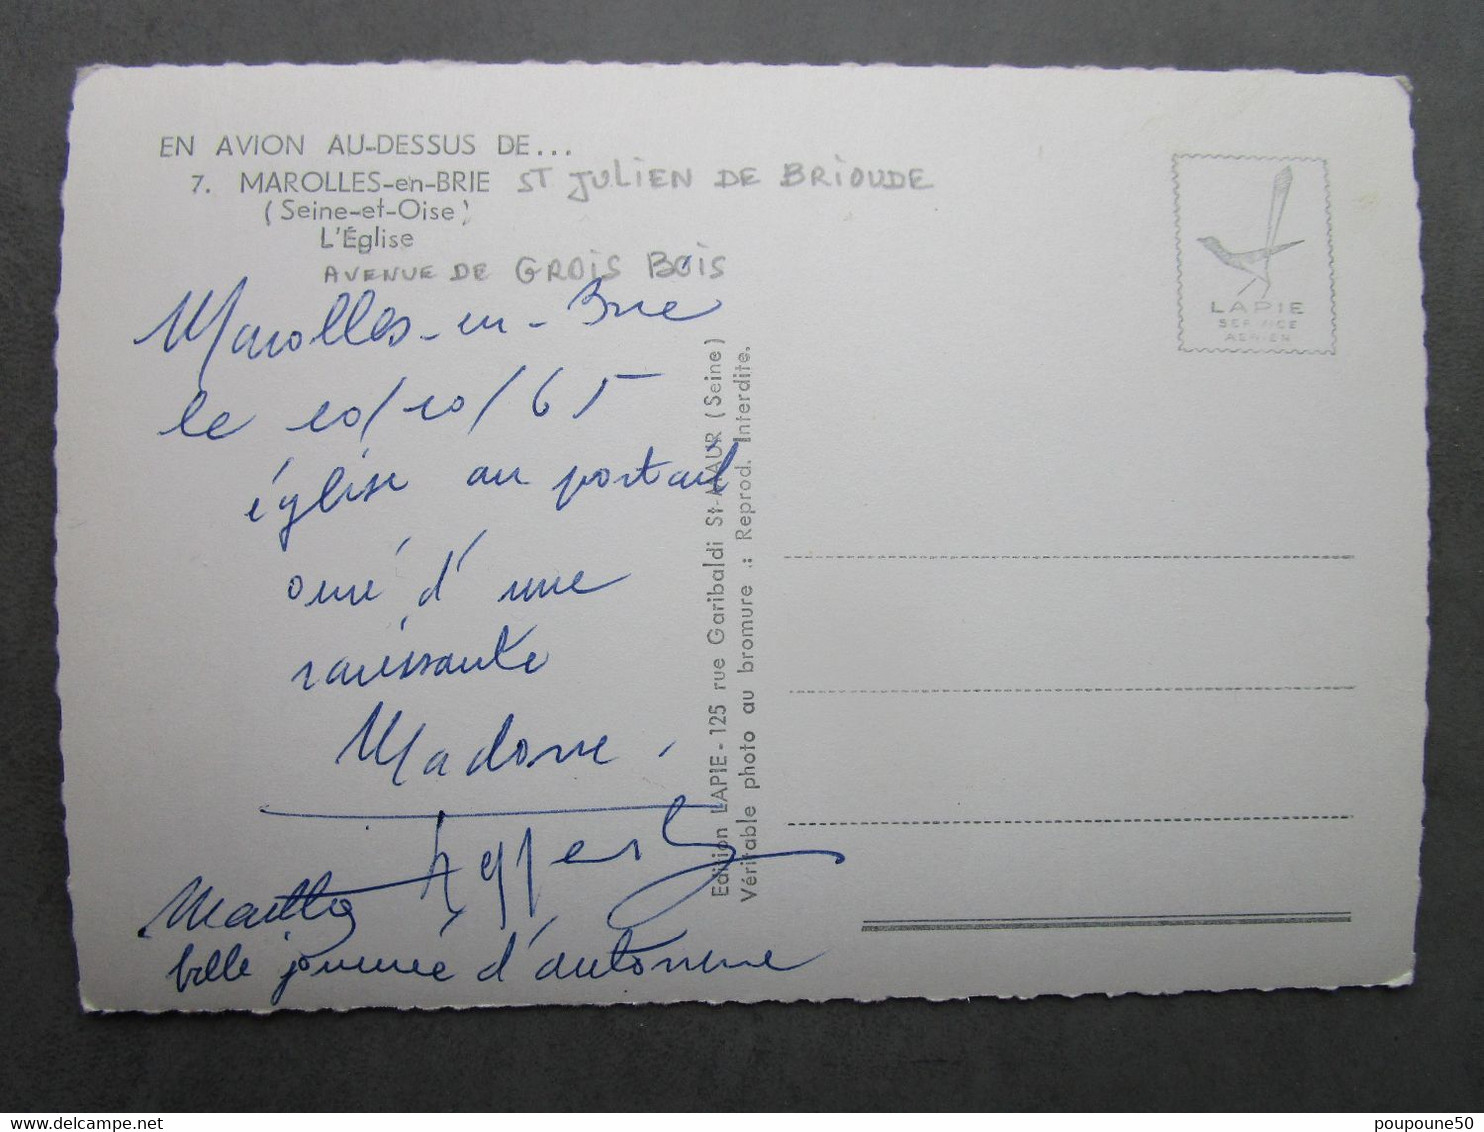 EN AVION AU-DESSUS DE...
7. MAROLLES-en-BRIE ST JULIEN DE BRIOUDE
(Seine-et-Oise)
L'Église
AVENUE DE GROIS BOIS
Marolles-en-Brie
le 10/10/65
église au portail
orné d'une
ravissante
Madone.
belle journée d'automne
Edition LAPIE - 125 rue Garibaldi St-MAUR (Seine)
Véritable photo au bromure .: Reprod. Interdite.
LAPIE
SERVICE
AERIEN
poupoune50